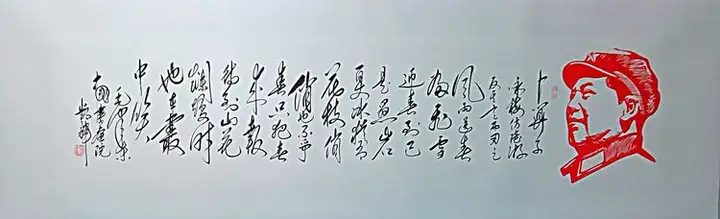 卜算子
反其意而用之
风雨送春
归飞雪
迎春到已
是悬崖百
丈冰犹有
花枝俏
俏也不争
春只把春
来报
待到山花
烂漫时
她在丛
中笑
毛泽东